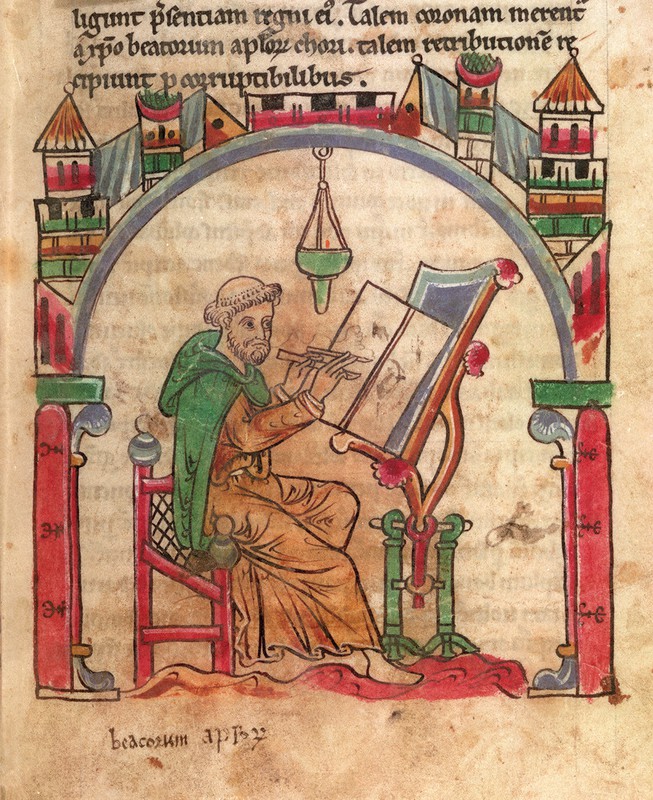 ligunt p̄sentiam regni ei᷒. Talem coronam merent᷑
a xp̄o beatorum aplōꝝ chori. talem retributionē re
cipiunt p corruptibilibus.
beatorum aplōꝝ